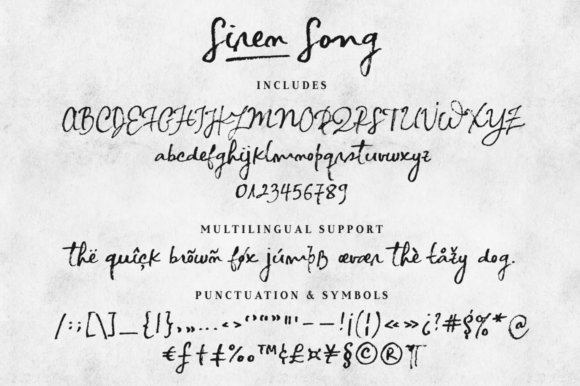 Siren Song
INCLUDES
ABCDEFGHIJKLMNOPQRSTUVWXYZ
abcdefghijklmnopqrstuvwxyz
0123456789
MULTILINGUAL SUPPORT
thë quîçk brõwñ føx júmþß œvær thè ŧåžy dog.
PUNCTUATION & SYMBOLS
/:;[\]_{|},»…‹›‘’“”"'–—!¡(¦)«»¿?#§%*@
€ƒ†‡‰™¢£¤¥§©®¶